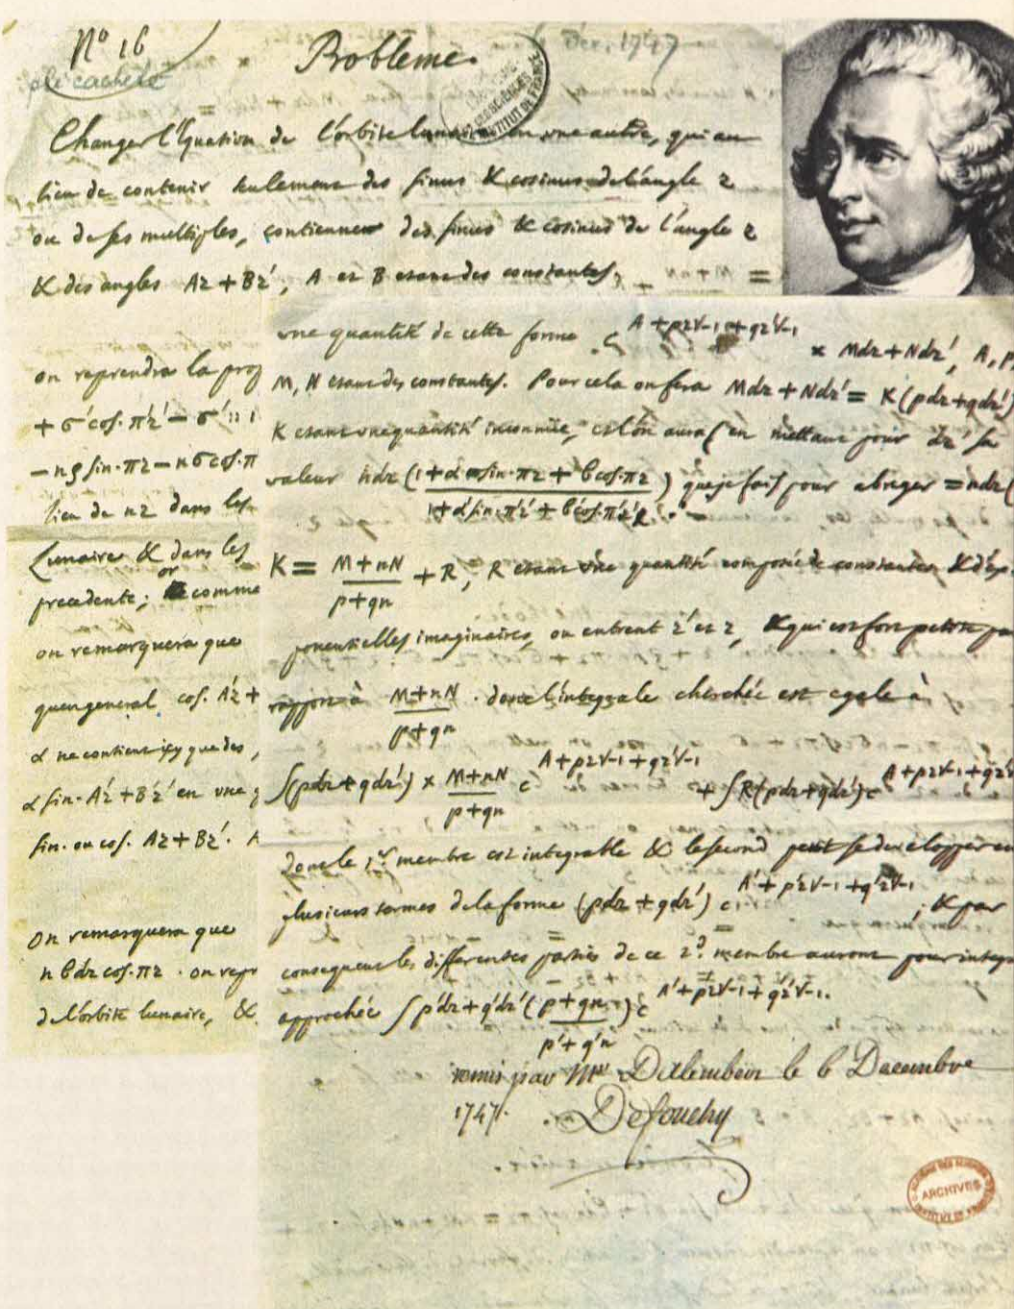 N° 16
pli cacheté
Probleme.
6 Dec. 1747
Changer l'Equation de l'orbite lunaire en une autre, qui au
lieu de contenir seulement des sinus & cosinus de l'angle z
ou de ses multiples, contienne des sinus & cosinus de l'angle z
& des angles Az + Bz', A et B etant des constantes,
on reprendra la
+ σ' cos. πz' - σ' :: 1
lieu de nz dans les
Lunaire & dans les
or
precedente; comme
on remarquera que
quengeneral cos. Az +
α ne contient icy que des
α sin. Az + Bz' en une
sin. ou cos. Az + Bz'.
On remarquera que
n b dz cos. πz . on repr
de l'orbite lunaire, &
une quantité de cette forme c A + pz√-1 + qz'√-1 × Mdz + Ndz', A, p,
M, N etant des constantes. Pour cela on fera Mdz + Ndz' = K (pdz + qdz')
K etant une quantité inconnue, et l'on aura (en mettant pour dz' sa
valeur ndz (1 + α sin. πz + b cos. πz / 1 + α' sin. π'z' + b' cos. π'z') que je fais pour abreger = ndz (
K = M + nN / p + qn + R, R etant une quantité composée de constantes & d'ex-
ponentielles imaginaires, ou entrent z' et z, & qui est fort petite par
rapport à M + nN / p + qn . donc l'integrale cherchée est egale à
∫(pdz + qdz') × M + nN / p + qn c A + pz√-1 + qz'√-1 + ∫R(pdz + qdz') c A + pz√-1 + qz'√-1
Donc le 1er membre est integrable & le second peut se developper en
plusieurs termes de la forme (pdz + qdz') c A' + p'z√-1 + q'z'√-1 ; & par
consequent les differentes parties de ce 2d. membre auront pour integr
approchée ∫ p'dz + q'dz' (p + qn / p' + q'n) c A' + p'z√-1 + q'z'√-1.
remis par Mr Dalembert le 6 Decembre
1747. Defouchy
ARCHIVES